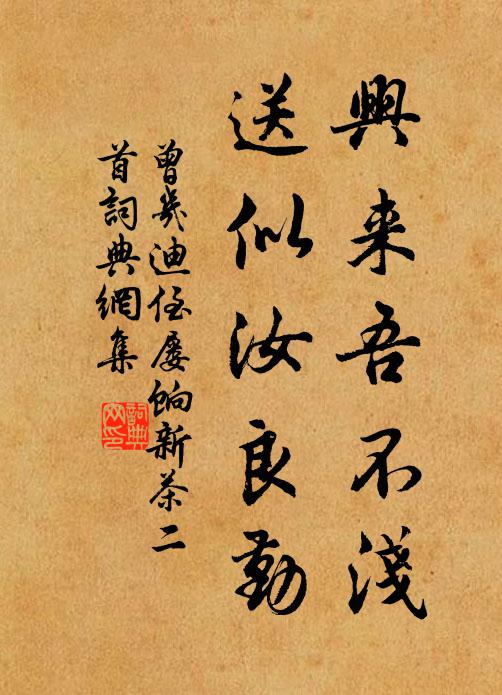 興来吾不淺
送似汝良勤
曾幾迪侄屡餉新茶二
首詞典網集
詞典
网印